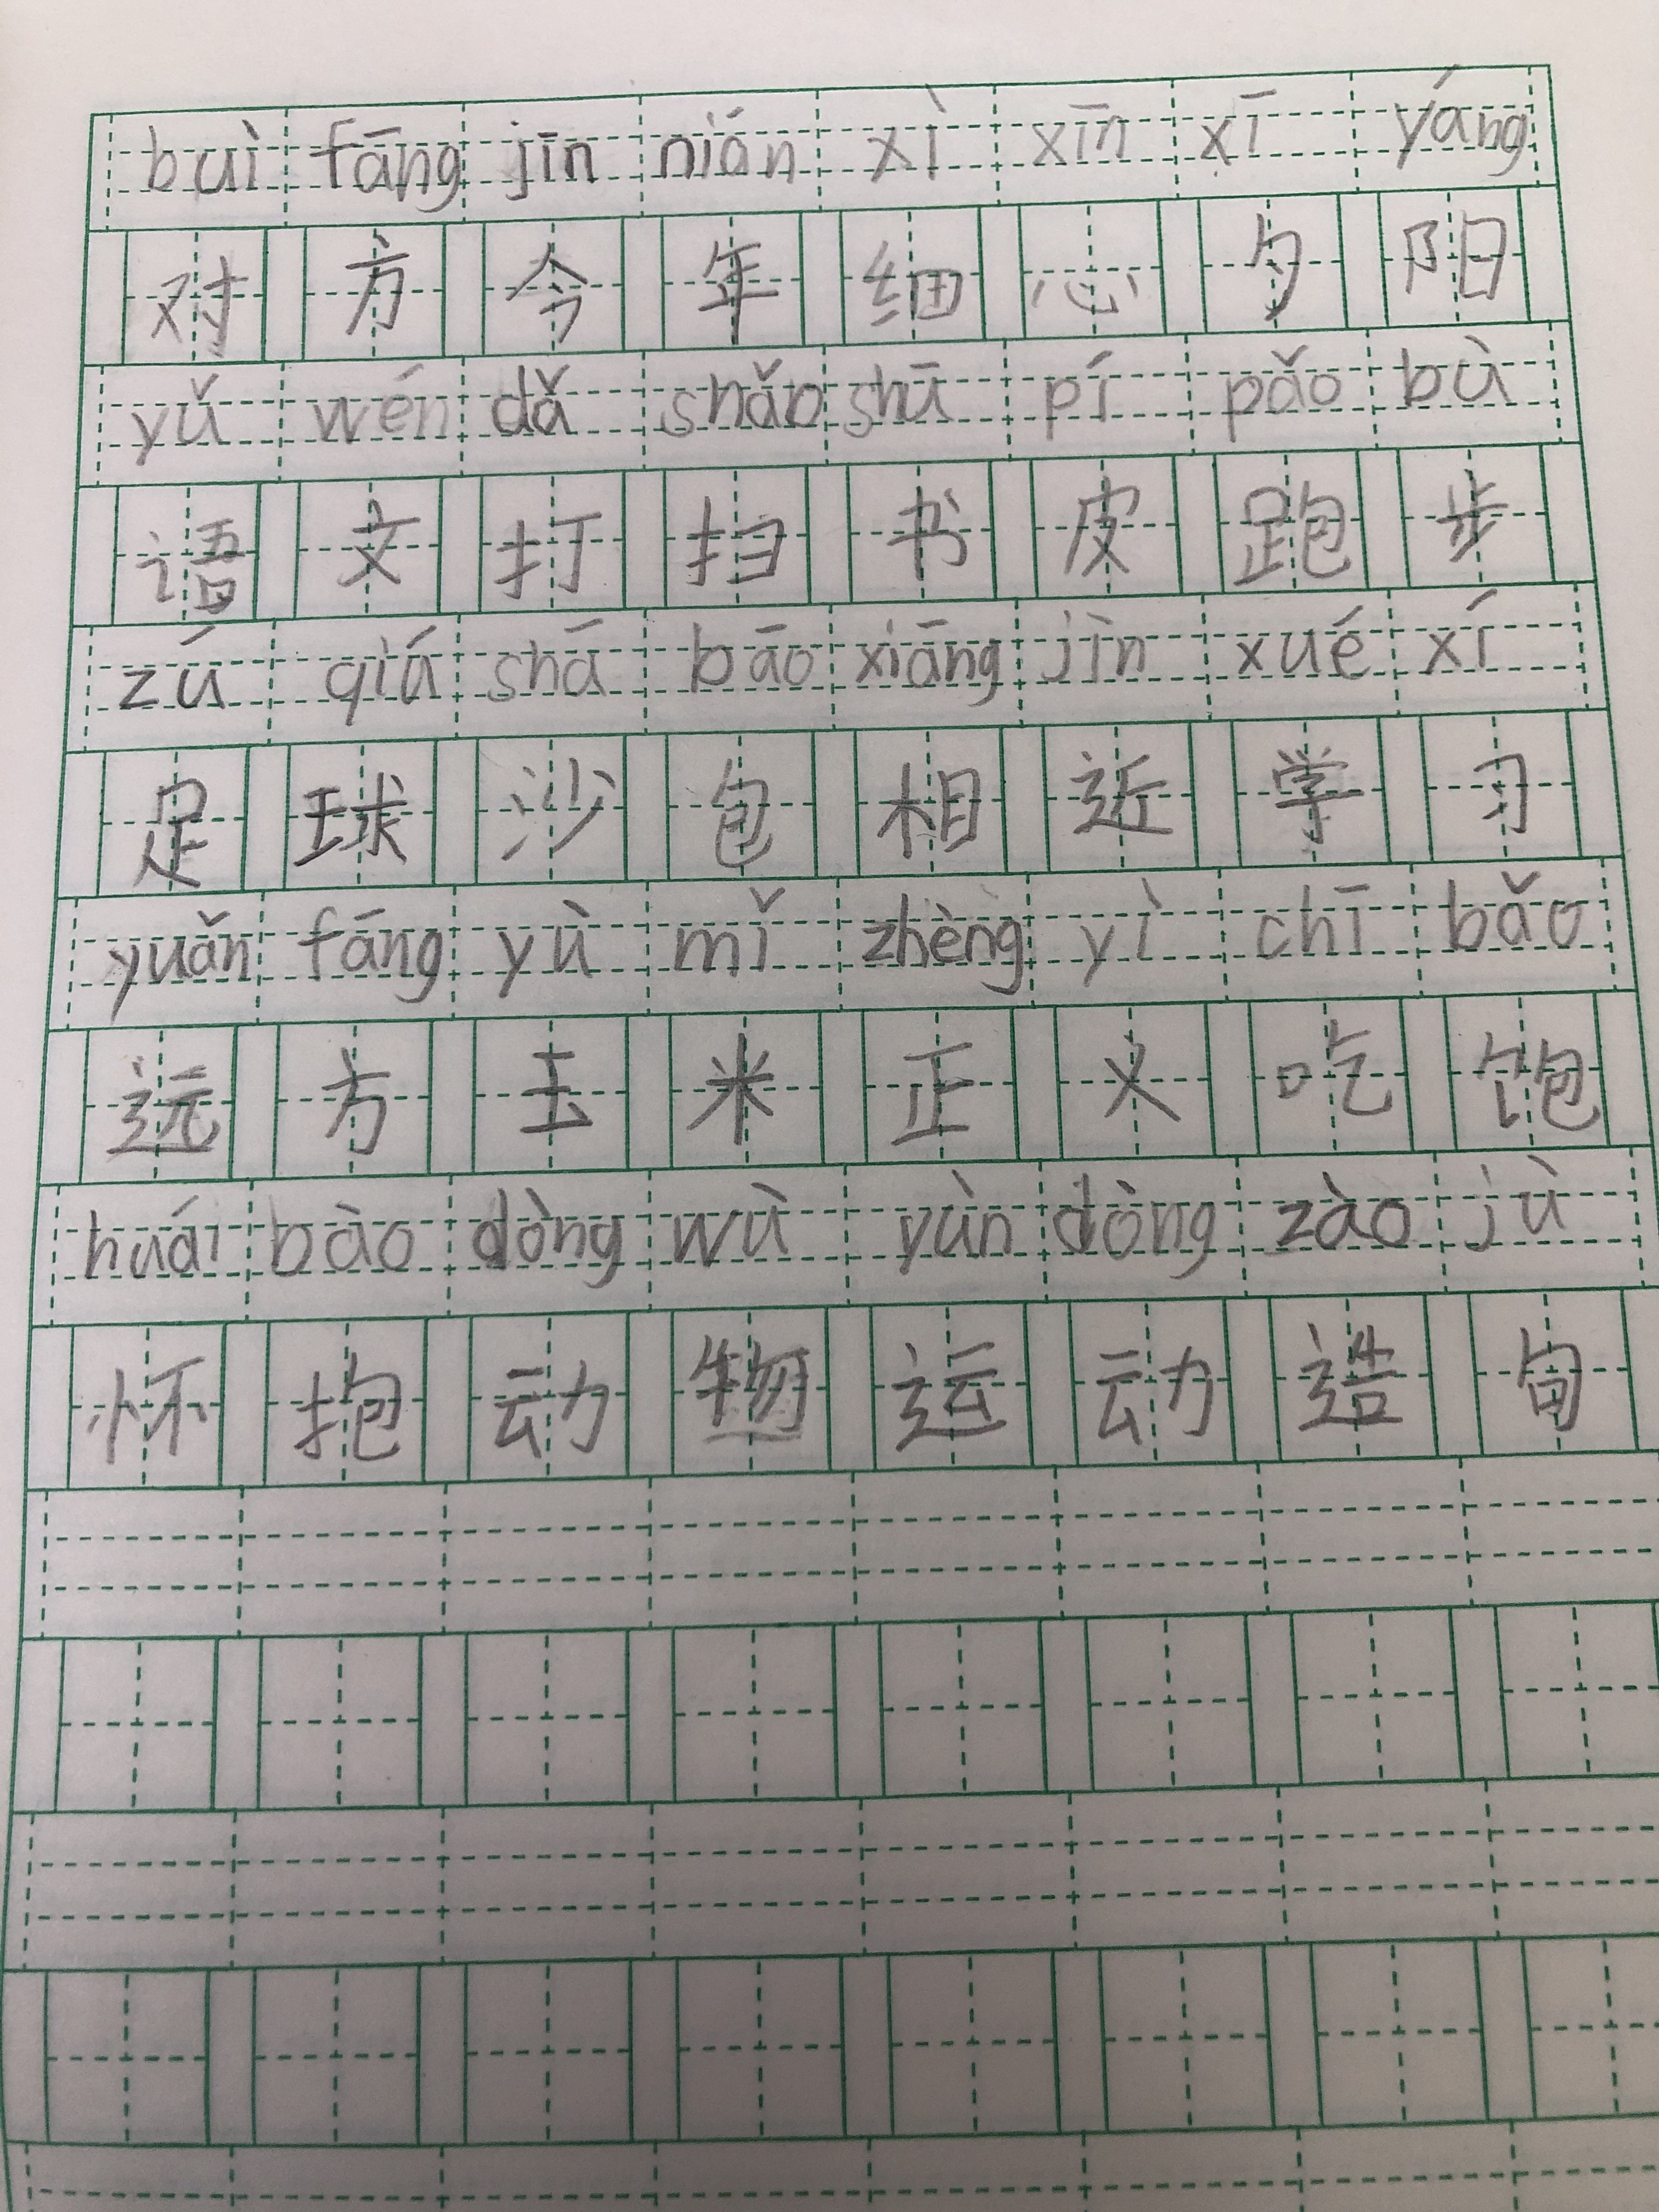 buì fāng jīn nián xì xīn xī yáng
对 方 今 年 细 心 夕 阳
yǔ wén dǎ shǎo shū pí pǎo bù
语 文 打 扫 书 皮 跑 步
zú qiú shā bāo xiāng jìn xué xí
足 球 沙 包 相 近 学 习
yuǎn fāng yù mǐ zhèng yì chī bǎo
远 方 玉 米 正 义 吃 饱
huái bào dòng wù yùn dòng zào jù
怀 抱 动 物 运 动 造 句